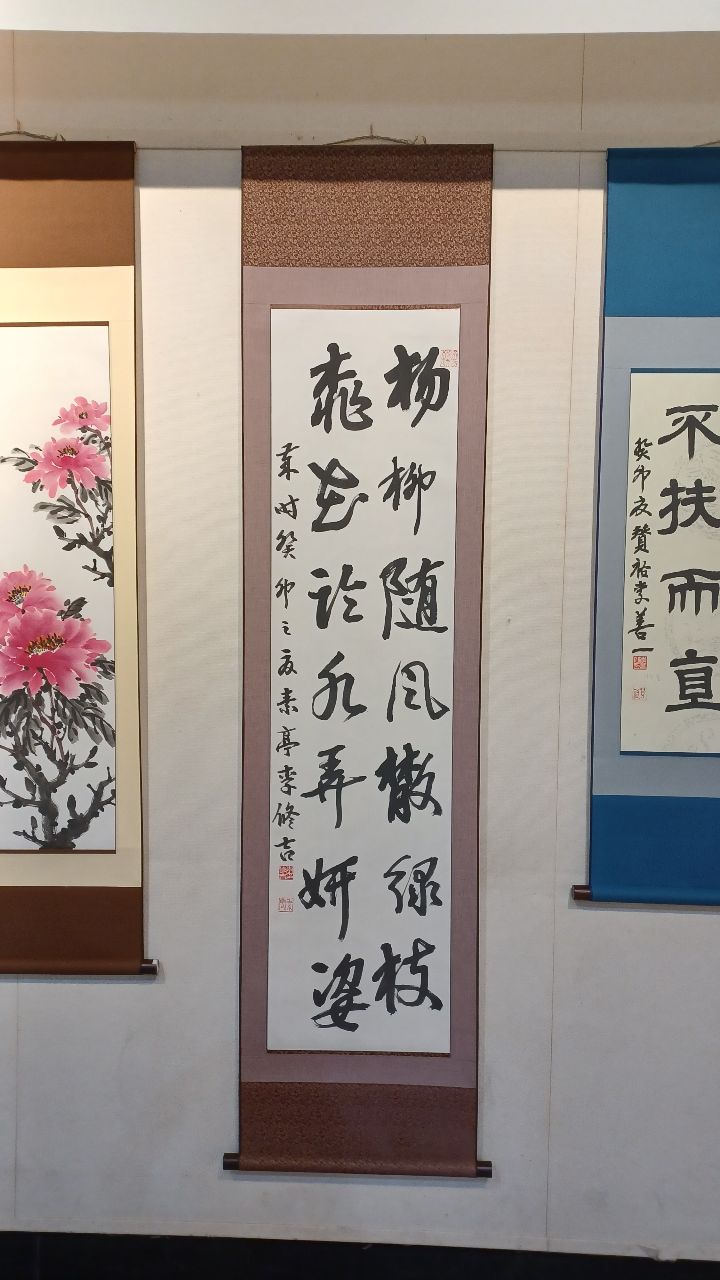 不扶而直
癸卯夏贊裕李善一
杨柳随风散绿枝
桃花临水弄妍姿
时癸卯之夏素亭李修吉